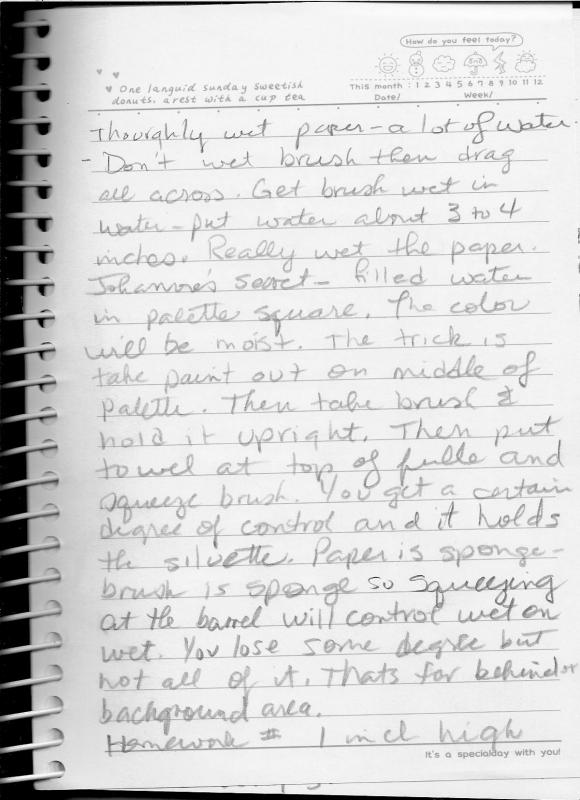 How do you feel today?
♥ ♥
♥ One languid sunday sweetish
donuts. arest with a cup tea
This month : 1 2 3 4 5 6 7 8 9 10 11 12
Date/ Week/
Thourghly wet paper - a lot of water.
- Don't wet brush then drag
all across. Get brush wet in
water - put water about 3 to 4
inches. Really wet the paper.
Johanne's secret - filled water
in palette square. The color
will be moist. The trick is
take paint out on middle of
palette. Then take brush &
hold it upright. Then put
towel at top of and
squeeze brush. You get a certain
degree of control and it holds
the siluette. Paper is sponge -
brush is sponge so squeezing
at the barrel will control wet on
wet. You lose some degree but
not all of it. Thats for behind or
background area.
Homework # 1 inch high
It's a specialday with you!